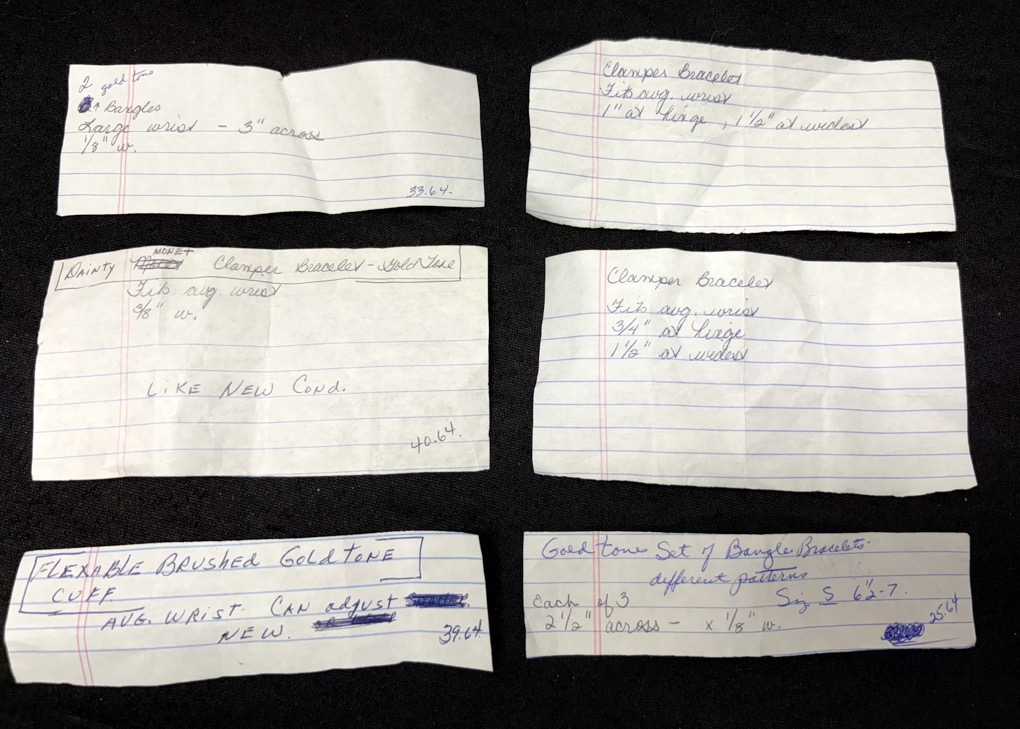 2 gold tone
Bangles
Large wrist - 3" across
1/8" w.
33.64.
Clamper Bracelet
Fits avg. wrist
1" at hinge, 1 1/2" at widest
DAINTY MONET Clamper Bracelet - Gold Tone
Fits avg. wrist
3/8" w.
LIKE NEW COND.
40.64.
Clamper Bracelet
Fits avg. wrist
3/4" at hinge
1 1/2" at widest
FLEXABLE BRUSHED GOLD TONE
CUFF
AVG. WRIST. CAN adjust
NEW.
39.64.
Gold tone Set of Bangle Bracelets-
different patterns
Each of 3
2 1/2" across - x 1/8" w.
25.64